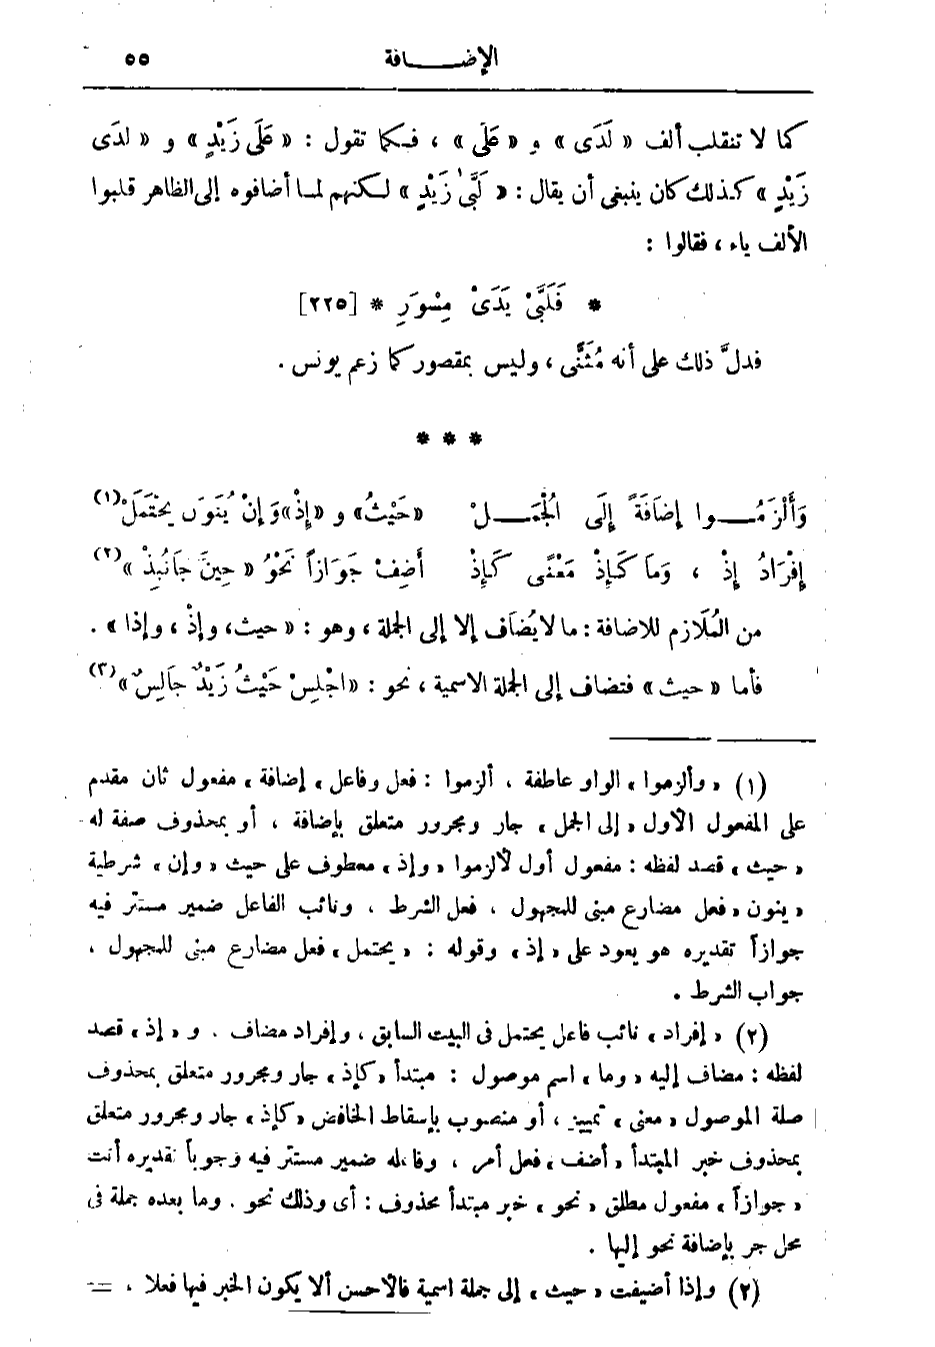 الإضــــافة ٥٥
كما لا تنقلب ألف « لَدَى » و « عَلَى » ، فـكما تقول : « عَلَى زَيْدٍ » و « لدى
زَيْدٍ » كـذلك كان ينبغى أن يقال : « لَبَّى زَيْدٍ » لـكنهم لمـا أضافوه إلى الظاهر قلبوا
الألف ياء ، فقالوا :
* فَلَبَّىْ يَدَىْ مِسْوَرِ * [٢٢٥]
فدلَّ ذلك على أنه مُثَنًّى ، وليس بمقصور كما زعم يونس .
* * *
وَأَلْزَمُــــوا إِضَافَةً إِلَى الْجُمَــلْ «حَيْثُ» و «إِذْ» وَإِنْ يُنَوَّنْ يُحْتَمَلْ (١)
إِفْرَادُ إِذْ ، وَمَا كَإِذْ مَعْنًى كَإِذْ أَضِفْ جَوَازاً نَحْوُ « حِينَ جَانُبِذْ » (٢)
من المُلَازم للاضافة : ما لا يُضَاف إلا إلى الجملة ، وهو : « حيث ، وإذْ ، وإذا » .
فأما « حيث » فتضاف إلى الجملة الاسمية ، نحو : « اجْلِسْ حَيْثُ زَيْدٌ جَالِسٌ » (٣)
(١) « وألزموا » الواو عاطفة ، ألزموا : فعل وفاعل « إضافة » مفعول ثان مقدم
على المفعول الأول « إلى الجمل » جار ومجرور متعلق بإضافة ، أو بمحذوف صفة له
« حيث » قصد لفظه : مفعول أول لألزموا « وإذ » معطوف على حيث « وإن » شرطية
« ينون » فعل مضارع مبنى للمجهول ، فعل الشرط ، ونائب الفاعل ضمير مستتر فيه
جوازاً تقديره هو يعود على « إذ » وقوله : « يحتمل » فعل مضارع مبنى للمجهول ،
جواب الشرط .
(٢) « إفراد » نائب فاعل يحتمل فى البيت السابق ، وإفراد مضاف . و « إذ » قصد
لفظه : مضاف إليه « وما » اسم موصول : مبتدأ « كإذ » جار ومجرور متعلق بمحذوف
صلة الموصول « معنى » تمييز ، أو منصوب بإسقاط الخافض « كإذ » جار ومجرور متعلق
بمحذوف خبر المبتدأ « أضف » فعل أمر ، وفاعله ضمير مستتر فيه وجوباً تقديره أنت
« جوازاً » مفعول مطلق « نحو » خبر مبتدأ محذوف : أى وذلك نحو . وما بعده جملة فى
محل جر بإضافة نحو إليها .
(٢) وإذا أضيفت « حيث » إلى جملة اسمية فالأحسن ألا يكون الخبر فيها فعلا ، =